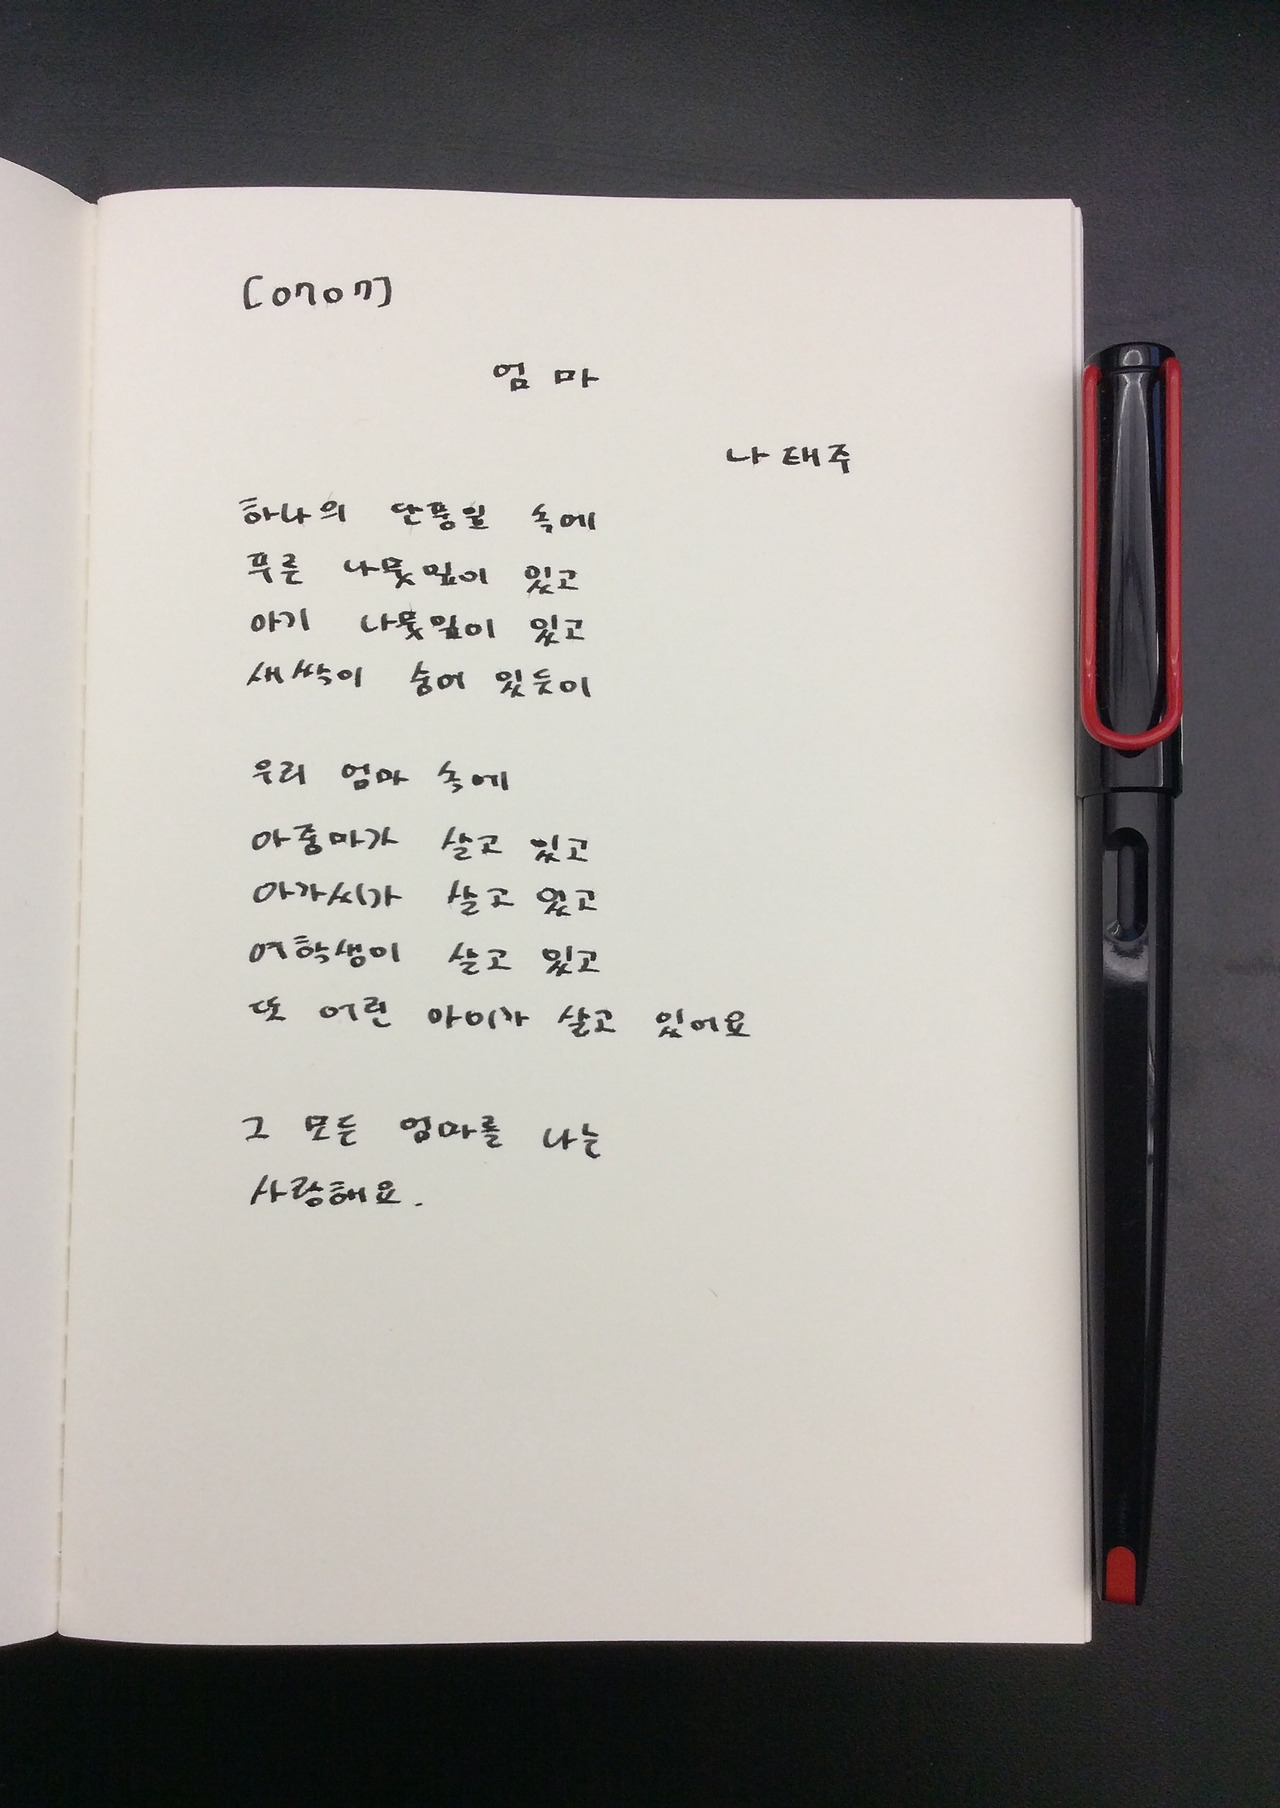 [0707]
엄마
나태주
하나의 단풍잎 속에
푸른 나뭇잎이 있고
아기 나뭇잎이 있고
새싹이 숨어 있듯이
우리 엄마 속에
아줌마가 살고 있고
아가씨가 살고 있고
여학생이 살고 있고
또 어린 아이가 살고 있어요
그 모든 엄마를 나는
사랑해요.